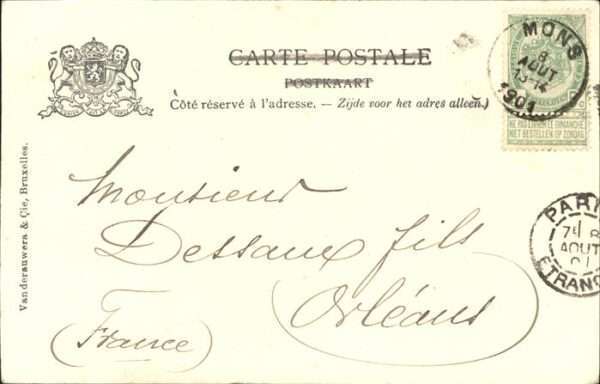 CARTE POSTALE
POSTKAART
Côté réservé à l'adresse. — Zijde voor het adres alleen.)
MONS
8
AOUT
13-14
1901
NE PAS LIVRER LE DIMANCHE
NIET BESTELLEN OP ZONDAG
Monsieur
Dessaux fils
Orléans
(France)
PARI
7E 8
AOUT
01
ETRANG
Vanderauwera & Cie, Bruxelles.